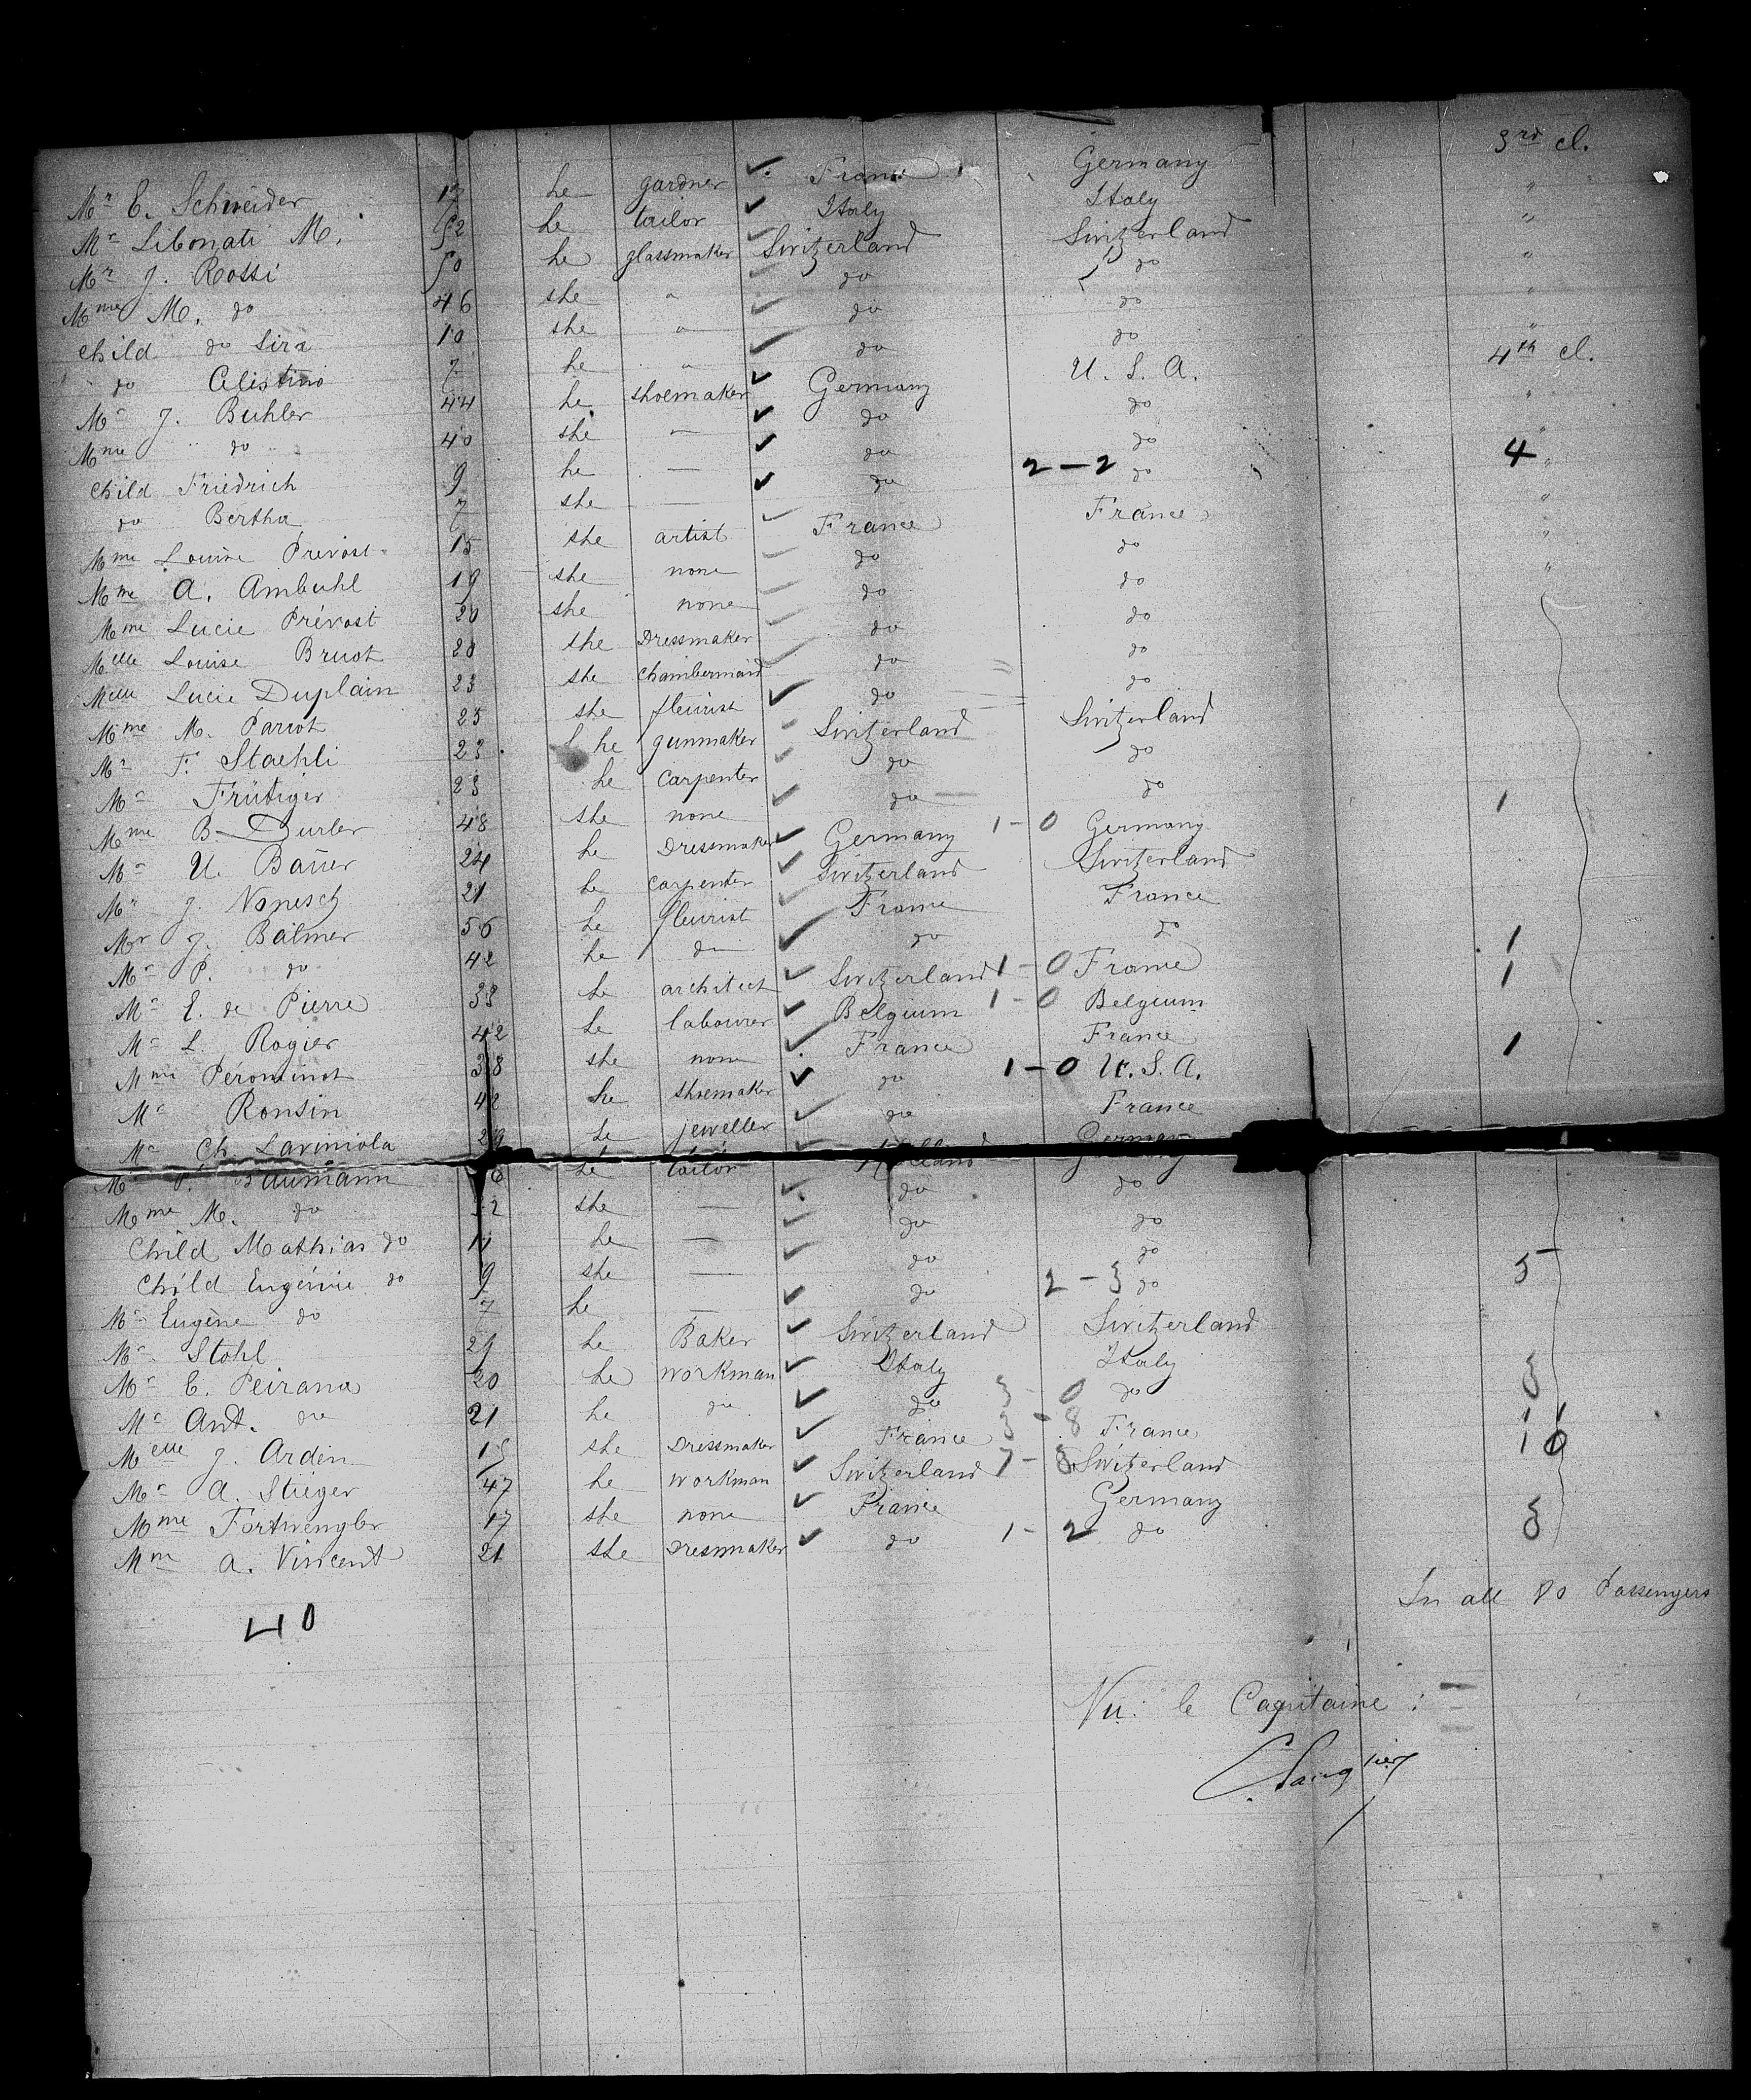 3rd cl.
Mr E. Schneider 17 he gardner France Germany "
Mr Libonati M. 52 he tailor Italy Italy "
Mr J. Rossi 50 he glassmaker Switzerland Switzerland "
Mme M. do 46 she " do do "
Child do Sira 10 she " do do "
do Celestino 7 he " do do
Mr J. Buhler 44 he shoemaker Germany U. S. A. 4th cl.
Mme do 40 she — do do "
Child Friedrich 9 he — do do "
do Bertha 7 she — do 2-2 do 4 "
Mme Louise Prevost 15 she artist France France "
Mme A. Ambuhl 19 she none do do "
Mme Lucie Prévost 20 she none do do "
Melle Louise Bruot 20 she Dressmaker do do
Melle Lucie Duplain 23 she Chambermaid do do
Mme M. Parrot 25 she fleurist do do
Mr F. Staehli 23 he gunmaker Switzerland Switzerland
Mr Frütiger 23 he Carpenter do do
Mme B. Durler 48 she none do do
Mr U. Baüer 24 he Dressmaker Germany 1-0 Germany 1
Mr J. 21 he carpenter Switzerland Switzerland
Mr J. Balmer 56 he fleurist France France
Mr P. do 42 he do do do
Mr E. de Pierre 33 he architect Switzerland 1-0 France 1
Mr L. Rogier 42 he labourer Belgium 1-0 Belgium 1
Mme Perominot 38 she none France France
Mr Ronsin 42 he shoemaker do 1-0 U. S. A. 1
Mr Ch. Laviniola 29 he jeweller do France
Mr P. Baumann 6 he tailor Holland Germany
Mme M. do 32 she — do do
Child Mathias do 11 he — do do
Child Eugénie do 9 she — do do
Mr Eugène do 7 he — do 2-3 do 5
Mr Stohl 29 he Baker Switzerland Switzerland
Mr E. Peirana 20 he workman Italy Italy
Mr Ant. do 21 he do do 3-0 do 3
Melle J. Arden 18 she Dressmaker France 3-8 France 11
Mr A. Stieger 47 he workman Switzerland 7-3 Switzerland 10
Mme Fortwengler 17 she none France Germany
Mme A. Vincent 21 she Dressmaker do 1-2 do 3
In all 80 Passengers
40
Vu: le Capitaine: